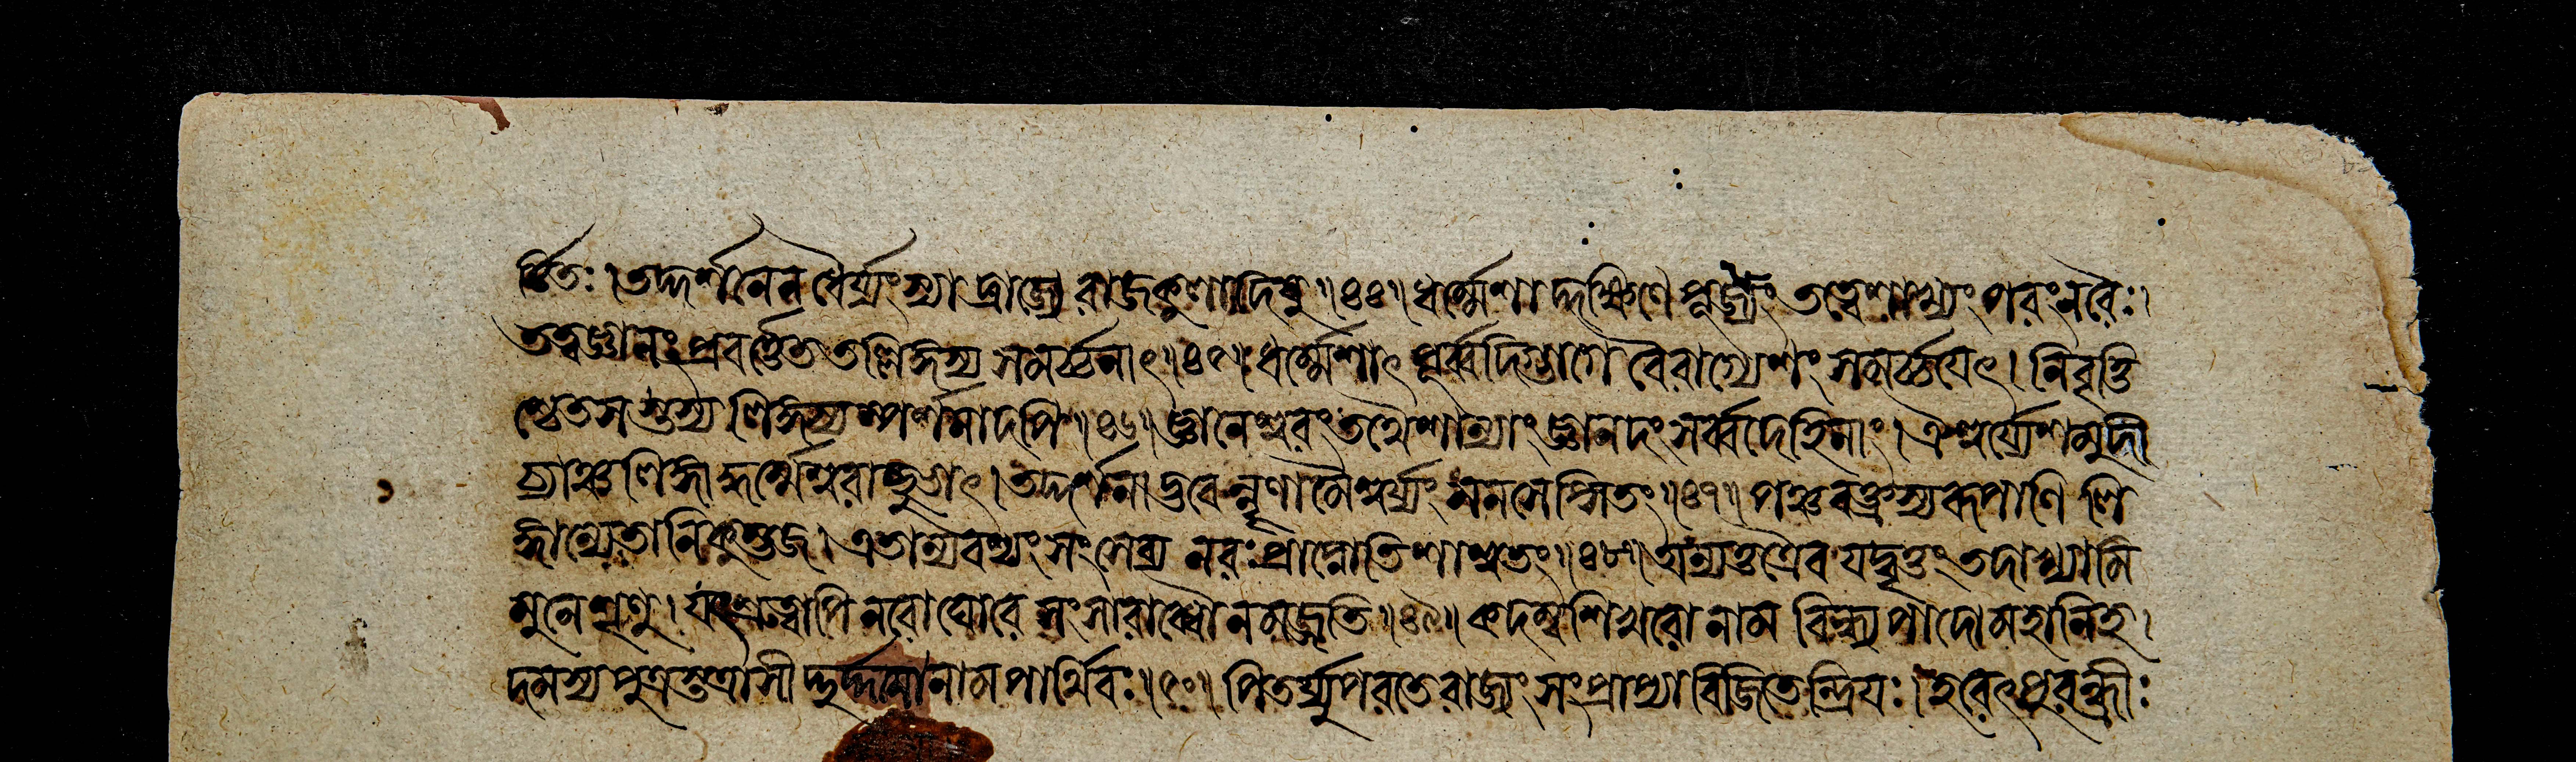 র্চ্চিতঃ। তদ্দর্শনেন ধৈর্য্যং স্যাদ্রাজ্যে রাজকুলাদিষু॥৪৪॥ ধর্ম্মেশাদ্দক্ষিণে পূজ্যং তত্বেশাখ্যং পরং নরৈঃ।
তত্বজ্ঞানং প্রবর্ত্তেত তল্লিঙ্গস্য সমর্চ্চনাৎ॥৪৫॥ ধর্ম্মেশাৎ পূর্ব্বদিগ্ভাগে বৈরাগ্যেশং সমর্চ্চযেৎ। নিবৃত্তি
শ্চেতসস্তস্য লিঙ্গস্য স্পর্শনাদপি॥৪৬॥ জ্ঞানেশ্বরং তথৈশান্যাং জ্ঞানদং সর্ব্বদেহিনাং। ঐশ্বর্য্যেশমুদী
চ্যাঞ্চ লিঙ্গাদ্ধর্ম্মেশ্বরাচ্ছুভাৎ। তদ্দর্শনাদ্ভবেন্নৃণামৈশ্বর্য্যং মনসেপ্সিতং॥৪৭॥ পঞ্চবক্ত্রস্য রূপাণি লি
ঙ্গান্যেতানি কুম্ভজ। এতান্যবশ্যং সংসেব্য নরঃ প্রাপ্নোতি শাশ্বতং॥৪৮॥ অন্যত্তত্রৈব যদ্বৃত্তং তদাখ্যামি
মুনে শৃণু। যৎশ্রুত্বাপি নরো ঘোরে সংসারাব্ধৌ ন মজ্জতি॥৪৯॥ কদম্বশিখরো নাম বিন্ধ্যপাদো মহানিহ।
দমস্য পুত্রস্তত্রাসীদ্দুর্দ্দমো নাম পার্থিবঃ॥৫০॥ পিতর্য্যুপরতে রাজ্যং সংপ্রাপ্যাবিজিতেন্দ্রিযঃ। হরেৎ পুরন্ধ্রীঃ